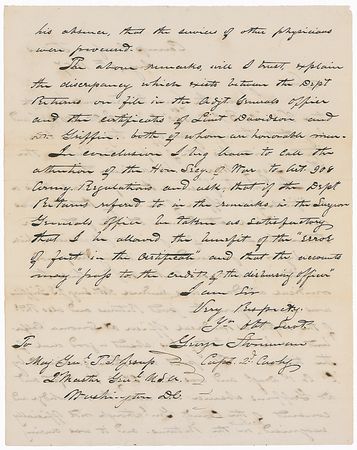 his absence, that the services of other physicians
were procured.
The above remarks, will I trust, explain
the discrepancy which exists between the Dept
Returns on file in the Adjt Generals Office
and the certificates of Lieut Davidson and
Dr Griffin, both of whom are honorable men.
In conclusion I beg leave to call the
attention of the Hon. Secy. of War to Art. 908
Army Regulations and ask, that if the Dept
Returns refered to in the remarks in the Surgeon
Generals Office be taken as satisfactory
that I be allowed the benefit of the "error
of fact in the Certificate" and that the accounts
may "pass to the credit of the disbursing officer"
I am Sir
Very Respectfy.
Yr Obt Servt.
George Stoneman
Capt. 2d Cavly
To
Maj Genl. T. S. Jesup
Q Master Genl. U.S.A.
Washington D.C.